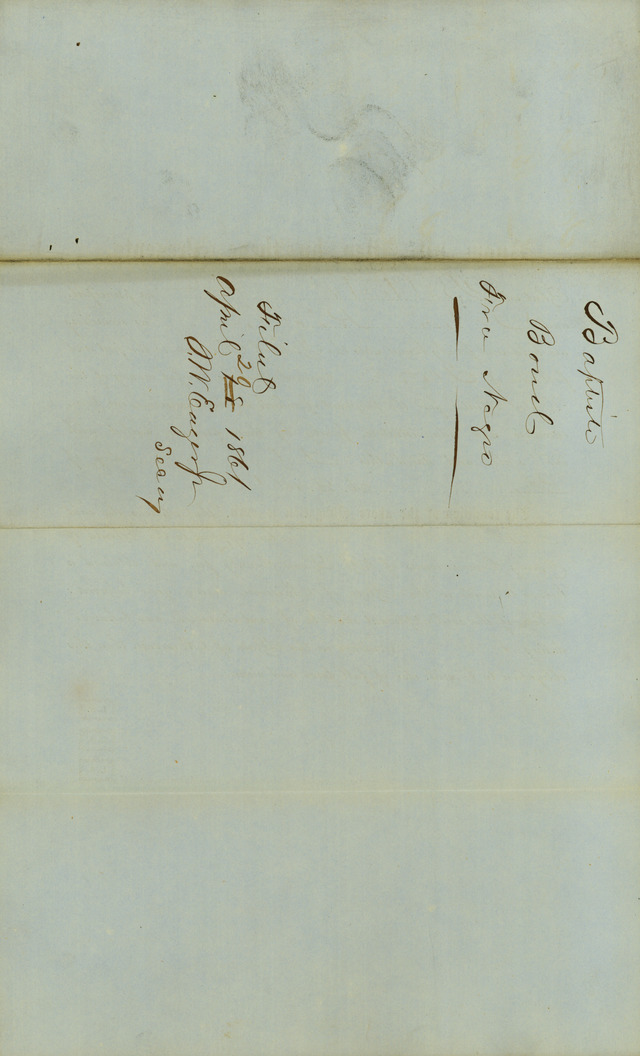 Baptiste
Bond
Free Negro
Filed
April 29 1861
A. W. Eager Jr